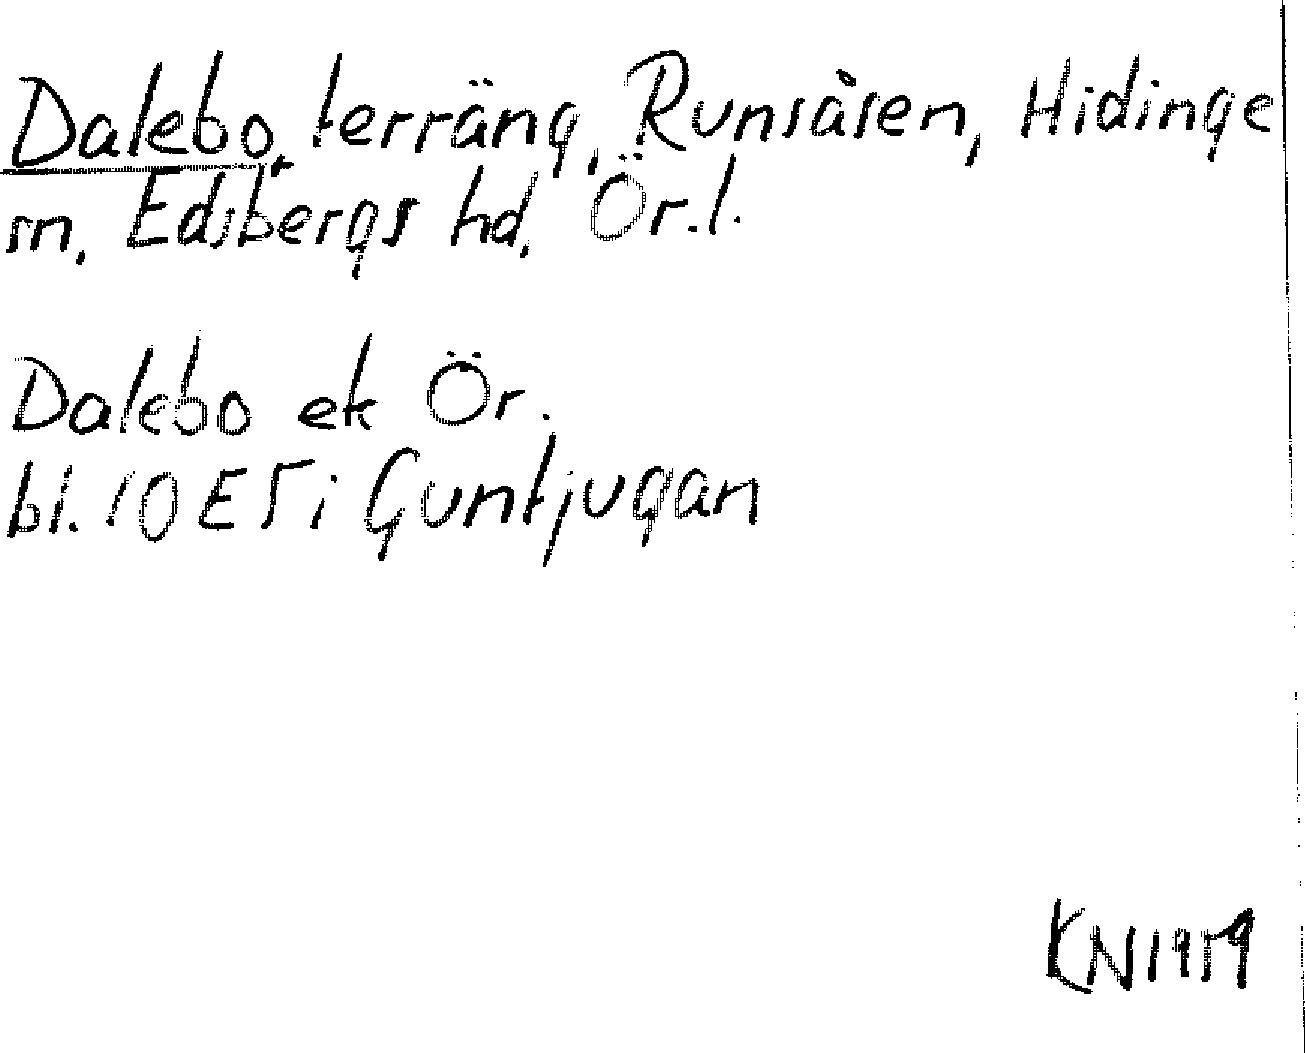 Dalebo, terräng, Runsåsen, Hidinge
sn, Edsbergs hd, Ör.l.
Dalebo ek Ör.
bl. 10 E 5 i Guntjugan
KN 1959